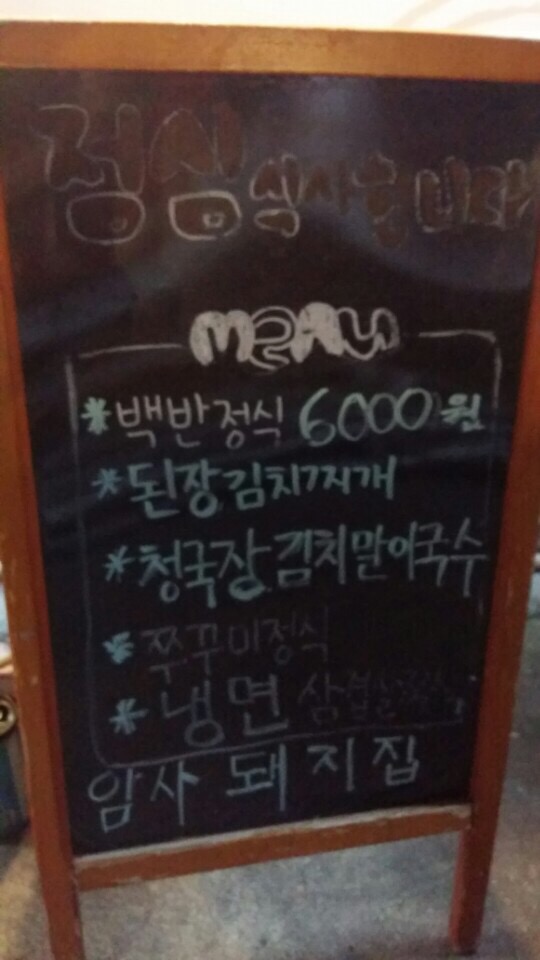 점심 식사합니다
menu
*백반정식 6000원
*된장김치찌개
*청국장김치말이국수
*쭈꾸미정식
*냉면
암사돼지집